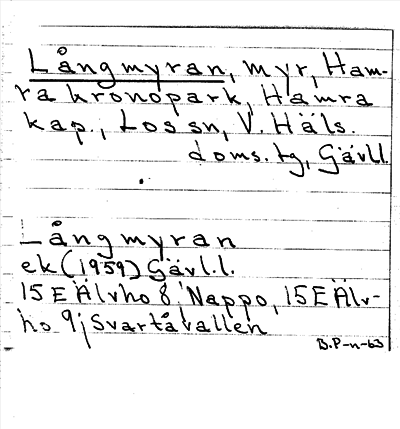 Långmyran, myr, Ham-
ra kronopark, Hamra
kap., Los sn, V. Häls.
doms. tg, Gävl.l.
Långmyran
ek (1959) Gävl.l.
15 E Älvho 8i Nappo, 15 E Älv-
ho 9j Svartåvallen
B.P-n-63